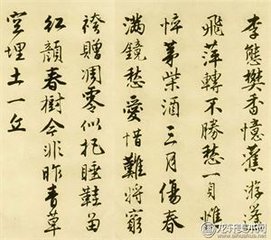 李態樊香憶舊游蓬
飛萍轉不勝愁一身憔
悴茅柴酒三月傷春
滿鏡愁愛惜難將窮
袴贈凋零似把睡鞋留
紅顏春樹今非昨青草
空埋土一丘